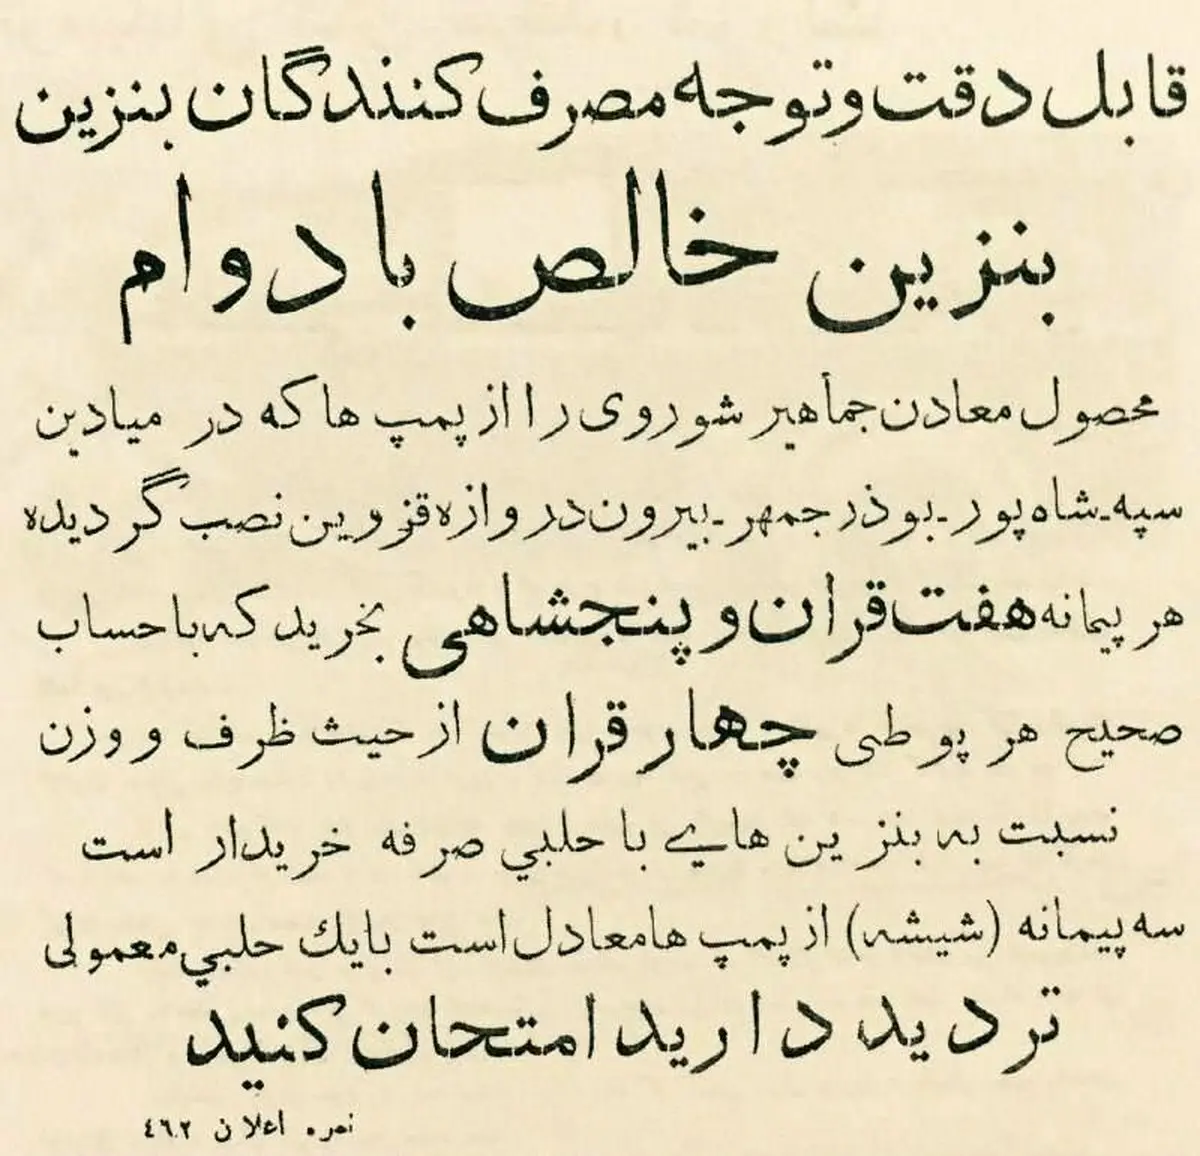 قابل دقت و توجه مصرف کنندگان بنزین
بنزین خالص با دوام
محصول معادن جمأهیر شوروی را از پمپ ها که در میادین
سپه-شاه پور-بوذرجمهر-بیرون دروازه قزوین نصب گردیده
هر پیمانه هفت قران و پنجشاهی بخرید که با حساب
صحیح هر پوطی چهار قران از حیث ظرف و وزن
نسبت به بنزین هایے با حلبي صرفه خریدار است
سه پیمانه (شیشه) از پمپ ها معادل است با یك حلبي معمولی
تردید دارید امتحان کنید
نمره اعلان ٤٦٢